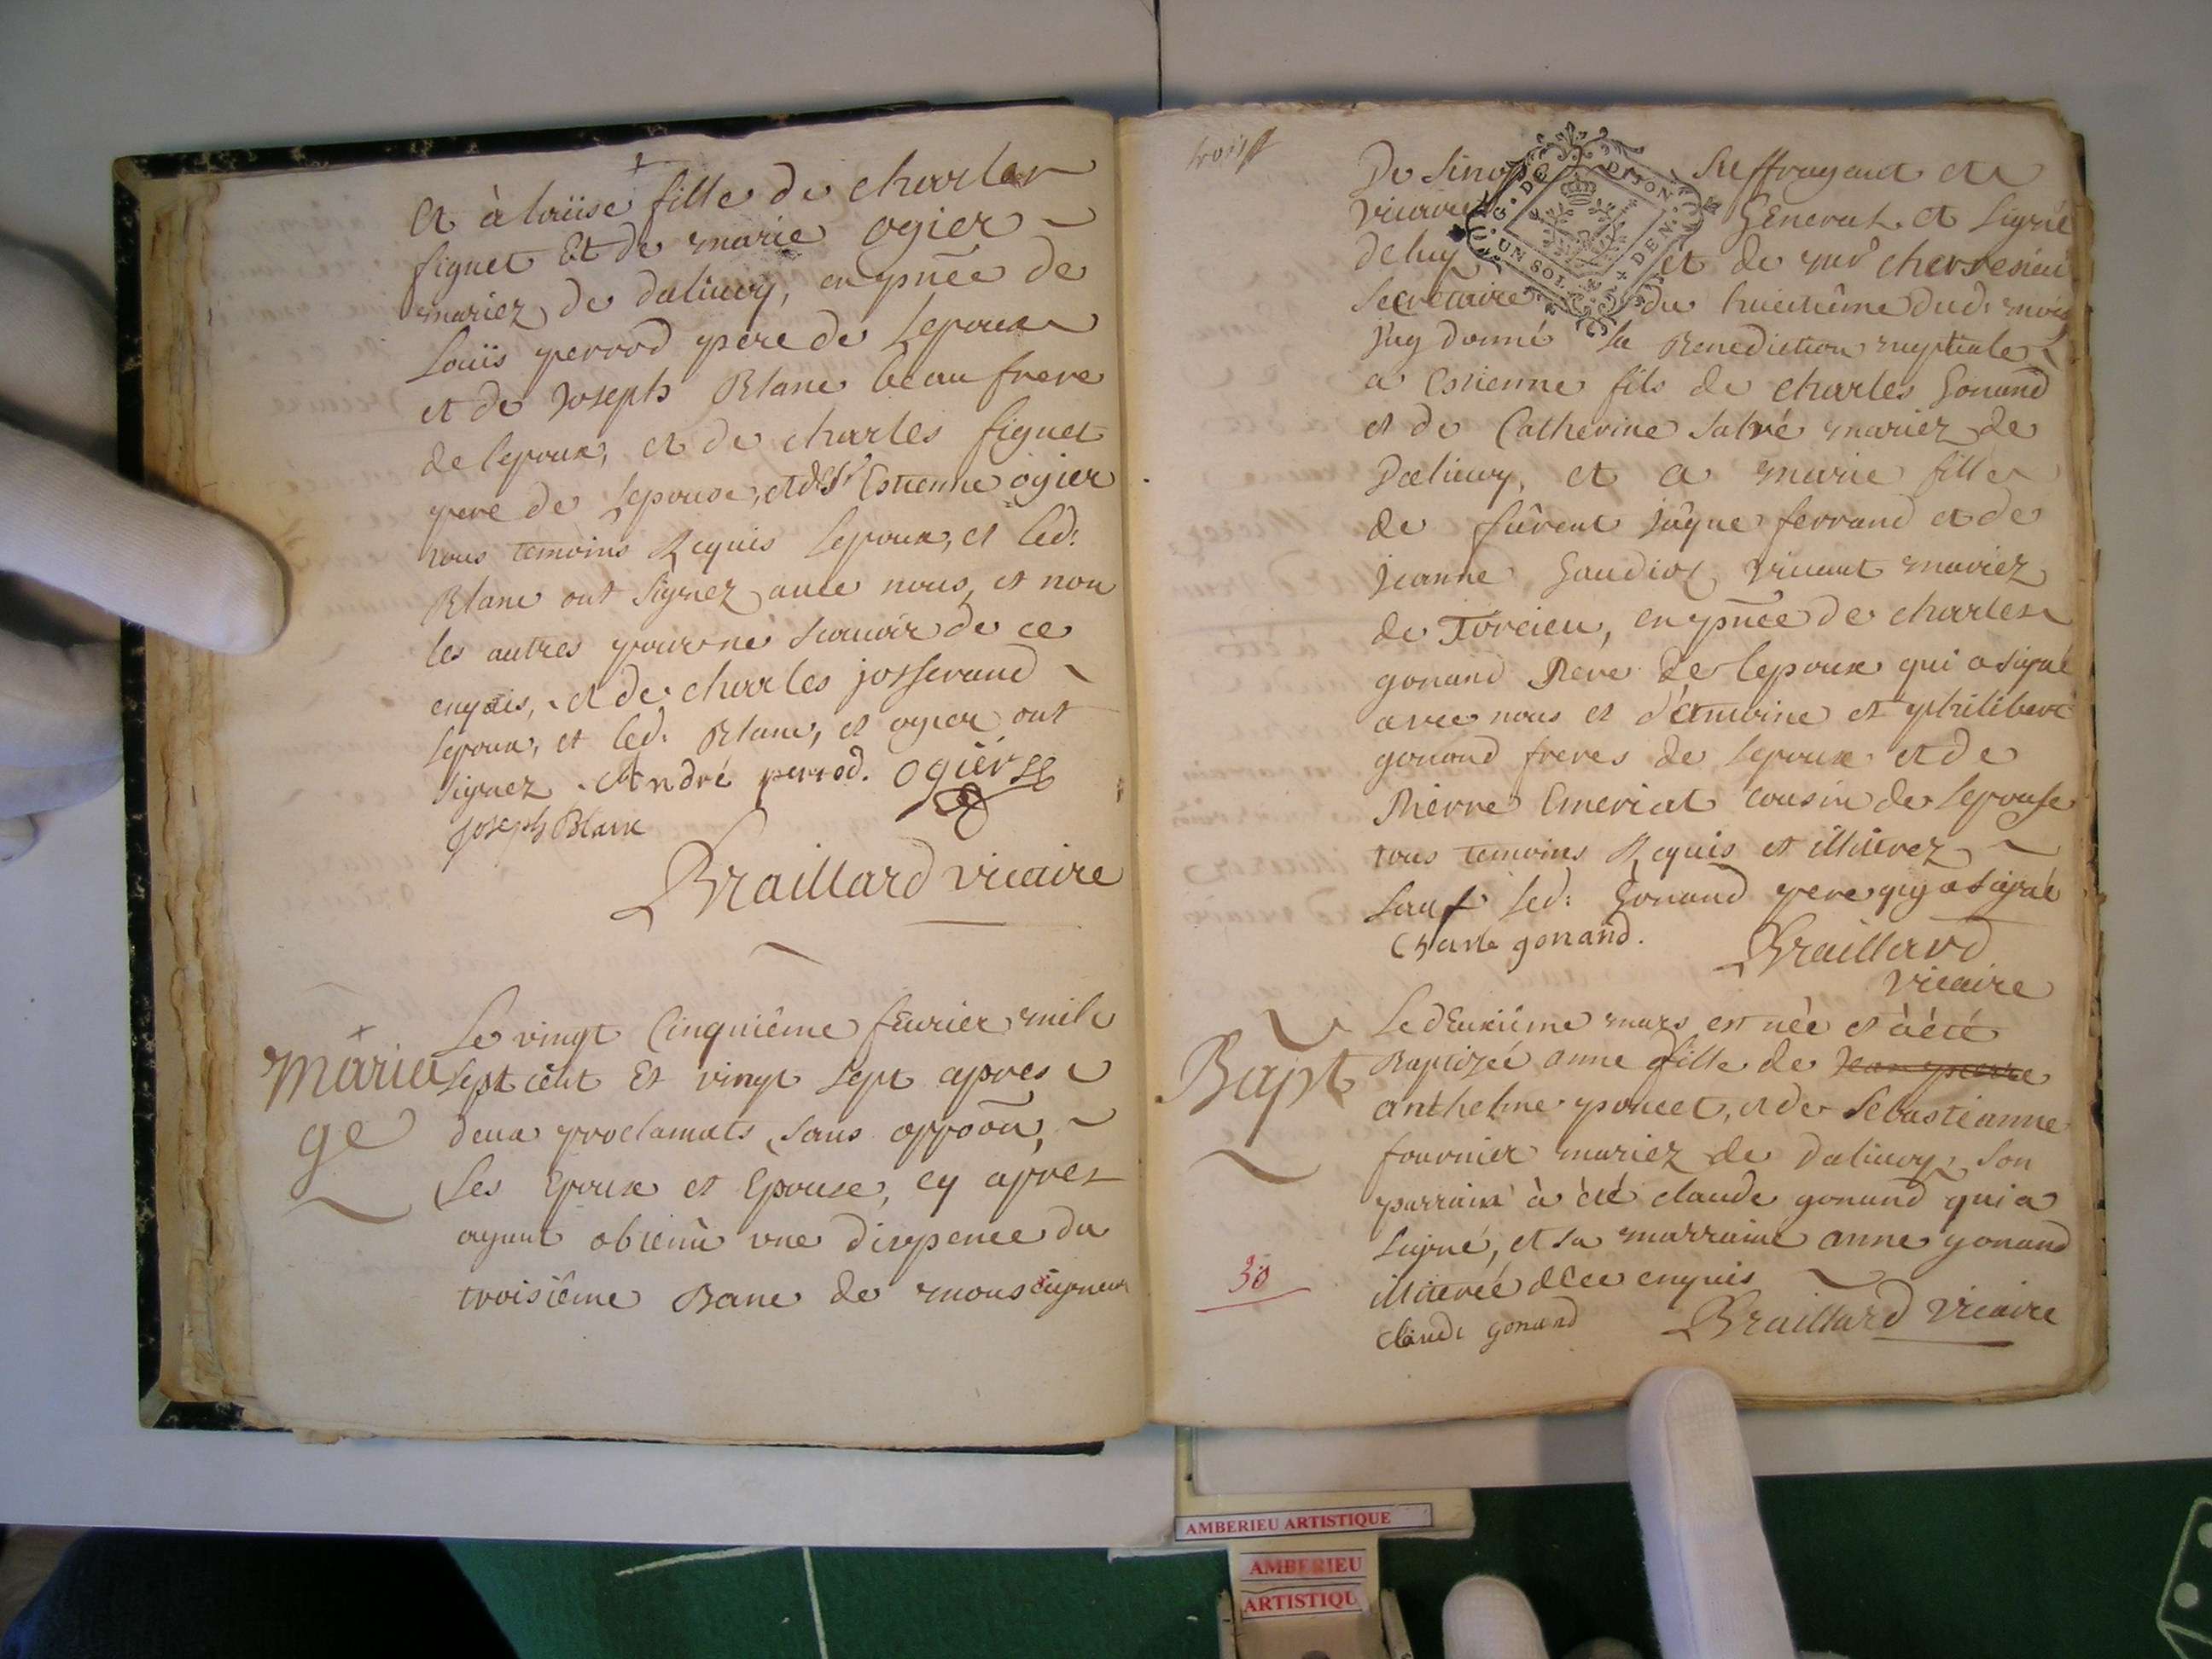 Et à loüise fille de charles
figuet Et de marie ogier
mariez de dalivoy, en pñée de
Loüis perrod pere de Lepoux
et de Joseph Blanc beaufrere
de lepoux, et de charles figuet
pere de Lepouse, et de Sr Estienne ogier
tous temoins Requis Lepoux, et led:
Blanc ont signez avec nous, et non
les autres pour ne scavoir de ce
enquis, et de charles josserand
Lepoux, et led. Blanc, et ogier ont
signez. André perrod. Ogier
joseph Blanc
Braillard vicaire
Mariage
Le vingt Cinquiême fëvrier mile
sept cent Et vingt sept apres
deux proclamats, sans oppoõn,
Les Epoux et Epouse, cy apres
ayant obtenü une dispence du
troisiême Banc de monseigneur
trois
De Sinop Suffragant et
vicaire General et Signé
de luy et de mr
Secretaire du huictiême dud: mois
J'ay donné la Benediction nuptiale
a Estienne fils de charles Gonand
et de Catherine Salvé mariez de
Dalivoy, et a marie fille
de fûrent Jâque ferrand et de
Jeanne Gaudiot vivant mariez
de Torcieu, en pñée de charles
gonand Pere de lepoux qui a signé
avec nous et d'Antoine et philibert
gonand freres de Lepoux et de
Pierre Emeriat cousin de Lepouse
tous temoins Requis et illiterez
sauf led: Gonand pere qui a signé
Charle gonand. Braillard
vicaire
Bapt
Le deuxiême mars est née et à été
Baptizée anne fille de Jean pierre
anthelme poncet, et de Sebastianne
fournier mariez de Dalivoy, son
parrain à été claude gonand qui a
Signé, et sa marraine anne gonand
illiterée de ce enquis
Claude gonand Braillard vicaire
30
G. DE DIJON
UN SOL DEN.
AMBERIEU ARTISTIQUE
AMBERIEU
ARTISTIQU